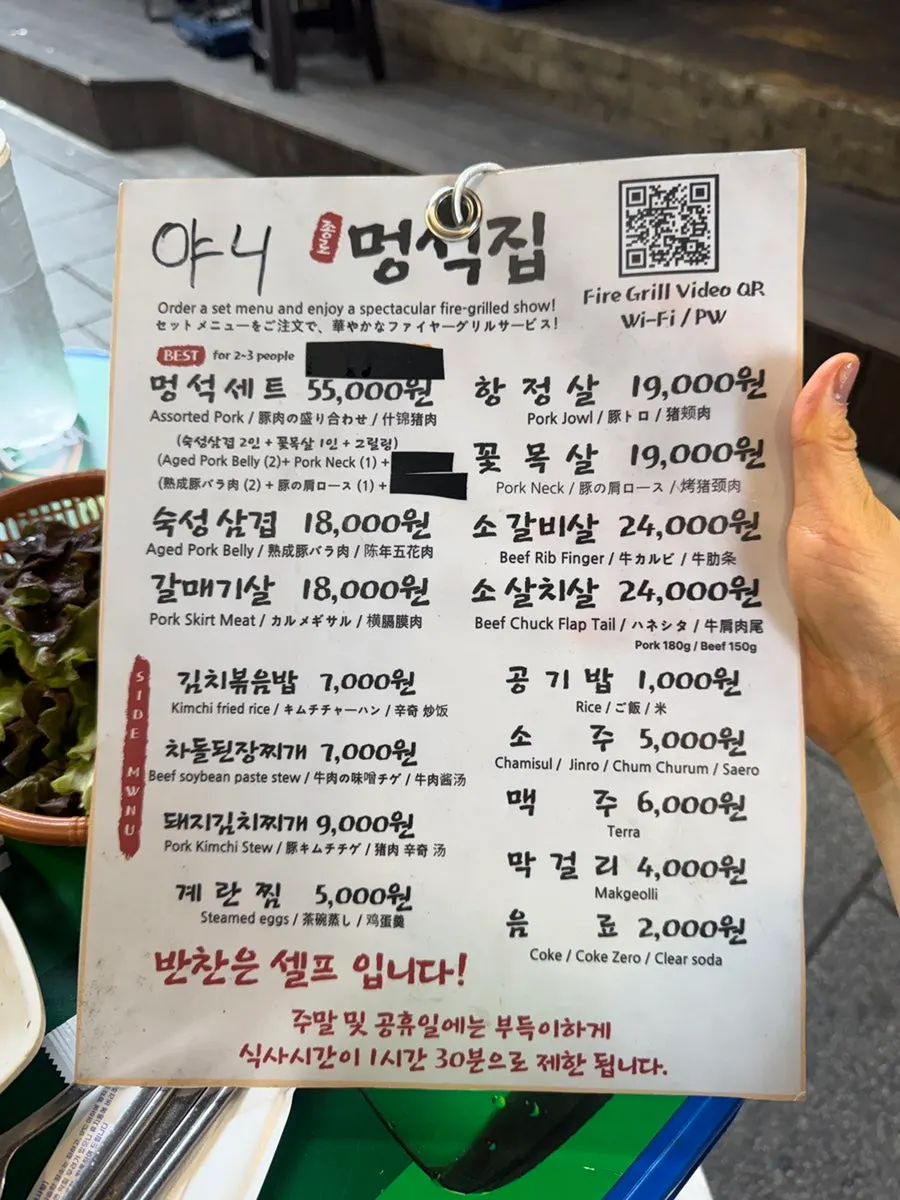 야니
종로
멍석집
Fire Grill Video QR
Wi-Fi / PW
Order a set menu and enjoy a spectacular fire-grilled show!
セットメニューをご注文で、華やかなファイヤーグリルサービス!
BEST for 2~3 people
멍석세트 55,000원
Assorted Pork / 豚肉の盛り合わせ / 什锦猪肉
(숙성삼겹 2인 + 꽃목살 1인 + 그릴링)
(Aged Pork Belly (2)+ Pork Neck (1) +
(熟成豚バラ肉 (2) + 豚の肩ロース (1) +
숙성삼겹 18,000원
Aged Pork Belly / 熟成豚バラ肉 / 陈年五花肉
갈매기살 18,000원
Pork Skirt Meat / カルメギサル / 横膈膜肉
항정살 19,000원
Pork Jowl / 豚トロ / 猪颊肉
꽃목살 19,000원
Pork Neck / 豚の肩ロース / 烤猪颈肉
소갈비살 24,000원
Beef Rib Finger / 牛カルビ / 牛肋条
소살치살 24,000원
Beef Chuck Flap Tail / ハネシタ / 牛肩肉尾
Pork 180g / Beef 150g
SIDE MWNU
김치볶음밥 7,000원
Kimchi fried rice / キムチチャーハン / 辛奇 炒饭
차돌된장찌개 7,000원
Beef soybean paste stew / 牛肉の味噌チゲ / 牛肉酱汤
돼지김치찌개 9,000원
Pork Kimchi Stew / 豚キムチチゲ / 猪肉 辛奇 汤
계란찜 5,000원
Steamed eggs / 茶碗蒸し / 鸡蛋羹
공기밥 1,000원
Rice / ご飯 / 米
소주 5,000원
Chamisul / Jinro / Chum Churum / Saero
맥주 6,000원
Terra
막걸리 4,000원
Makgeolli
음료 2,000원
Coke / Coke Zero / Clear soda
반찬은 셀프 입니다!
주말 및 공휴일에는 부득이하게
식사시간이 1시간 30분으로 제한 됩니다.